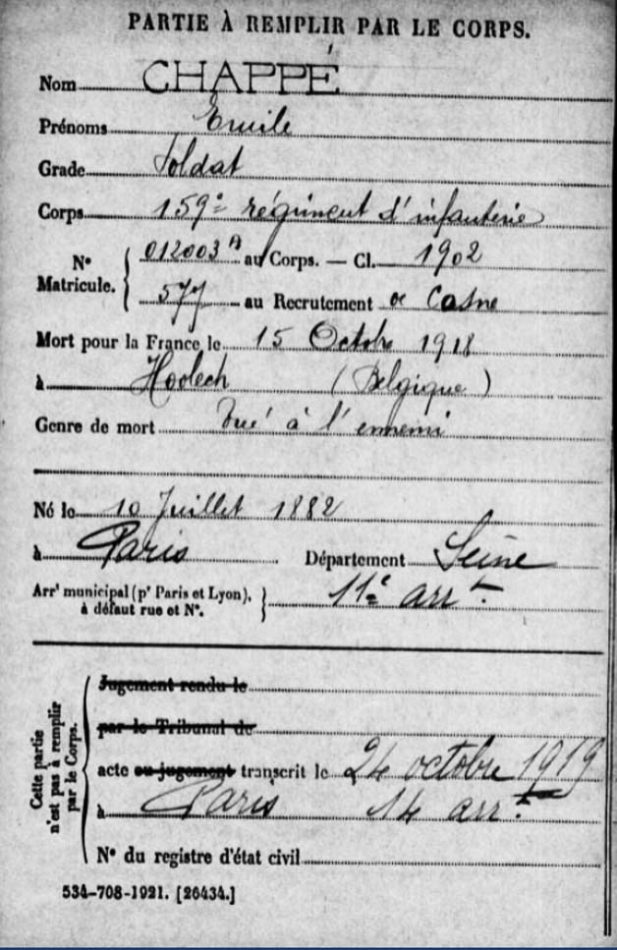 PARTIE À REMPLIR PAR LE CORPS.
Nom CHAPPÉ
Prénoms Emile
Grade Soldat
Corps 159e régiment d'infanterie
No Matricule. { 012003 A au Corps. — Cl. 1902
577 au Recrutement de Cosne
Mort pour la France le 15 Octobre 1918
à Hoolech (Belgique)
Genre de mort Tué à l'ennemi
Né le 10 Juillet 1882
à Paris Département Seine
Arrt municipal (pr Paris et Lyon), à défaut rue et No. } 11e arrt.
Cette partie n'est pas à remplir par le Corps.
Jugement rendu le
par le Tribunal de
acte ou jugement transcrit le 24 octobre 1919
à Paris 14 arrt.
No du registre d'état civil
534-708-1921. [26434.]